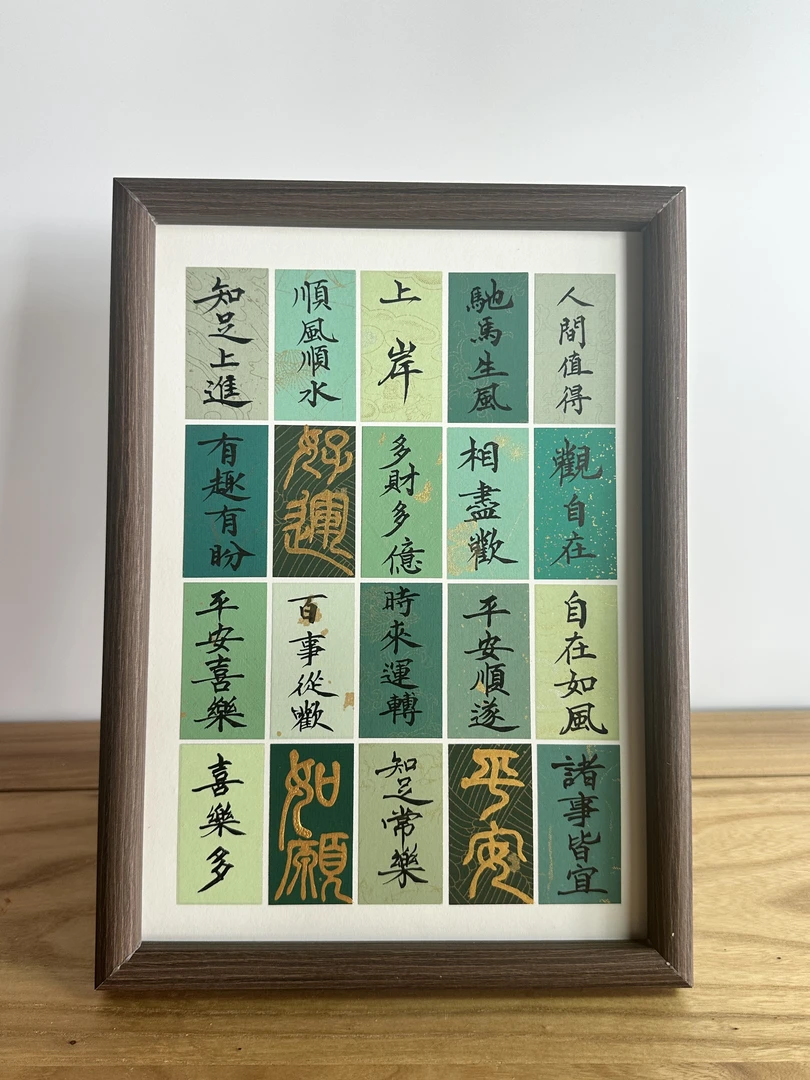 知足上進
順風順水
上岸
馳馬生風
人間值得
有趣有盼
好運
多財多億
相盡歡
觀自在
平安喜樂
百事從歡
時來運轉
平安順遂
自在如風
喜樂多
如願
知足常樂
平安
諸事皆宜